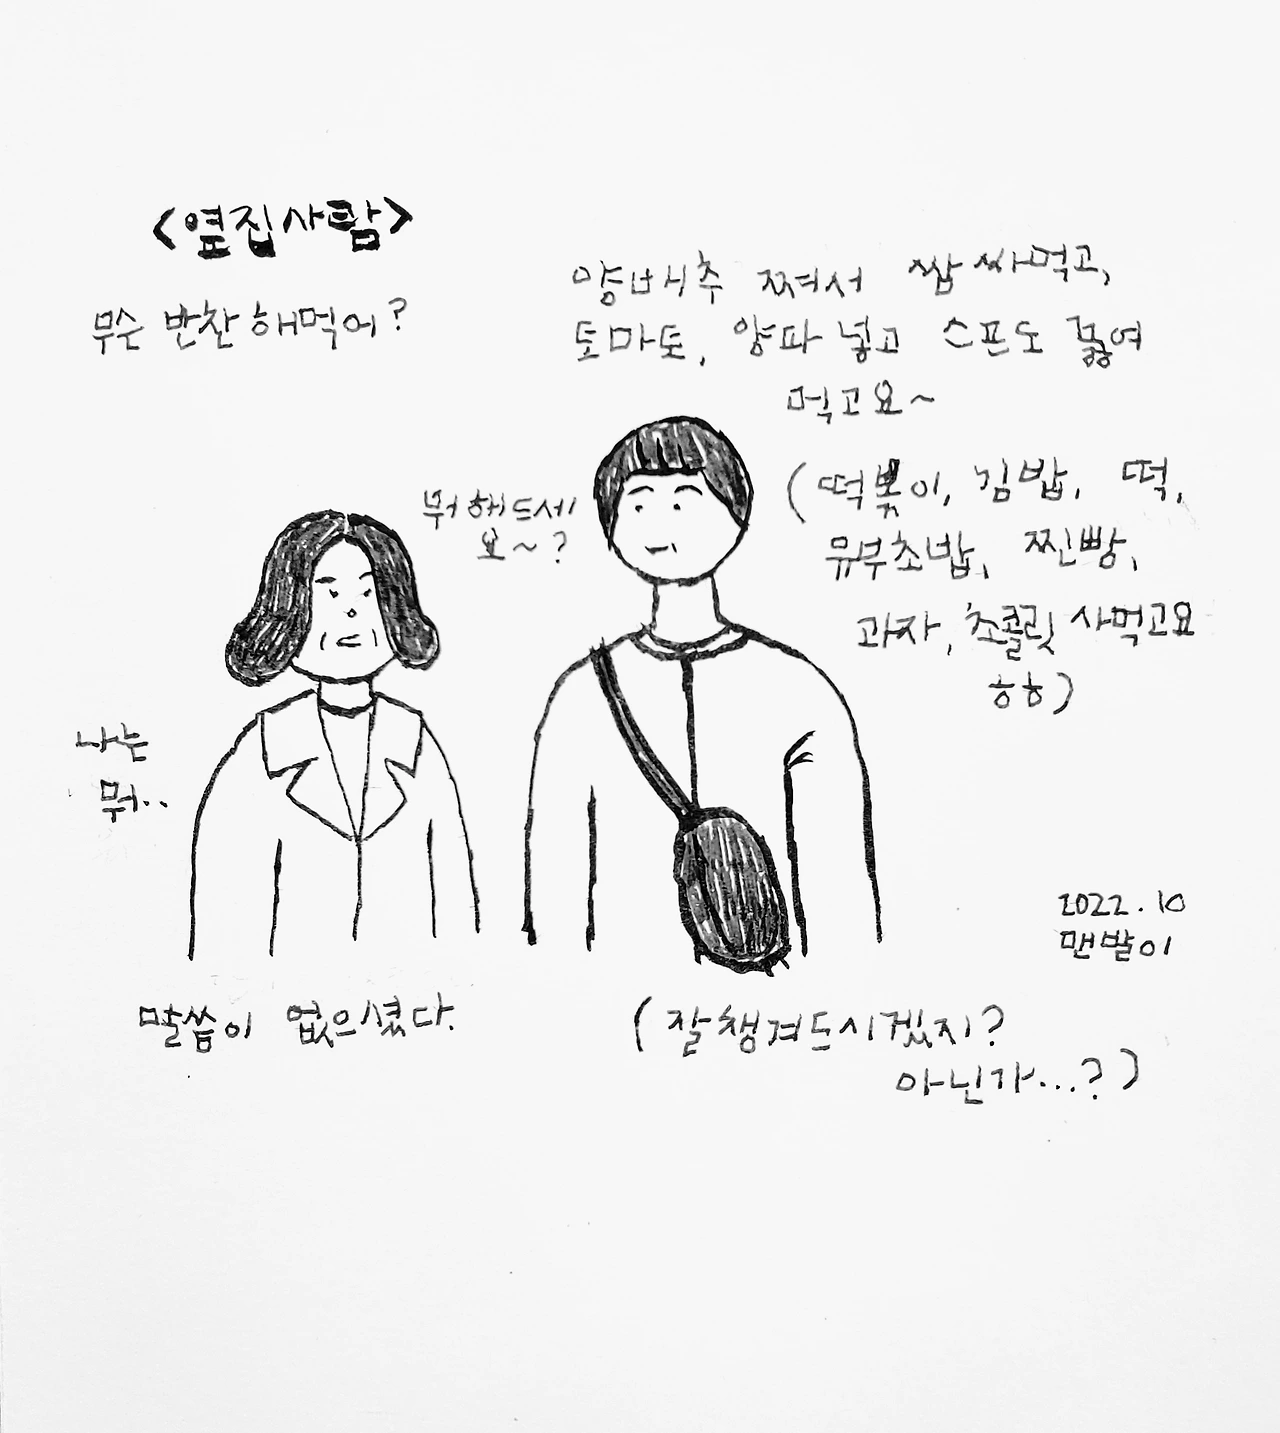 <옆집사람>
무슨 반찬 해먹어?
양배추 쪄서 쌈 싸먹고,
토마토, 양파 넣고 스프도 끓여
먹고요~
(떡볶이, 김밥, 떡,
유부초밥, 찐빵,
과자, 초콜릿 사먹고요
ㅎㅎ)
뭐 해드세
요~?
나는
뭐..
말씀이 없으셨다.
(잘 챙겨드시겠지?
아닌가...?)
2022.10
맨발이